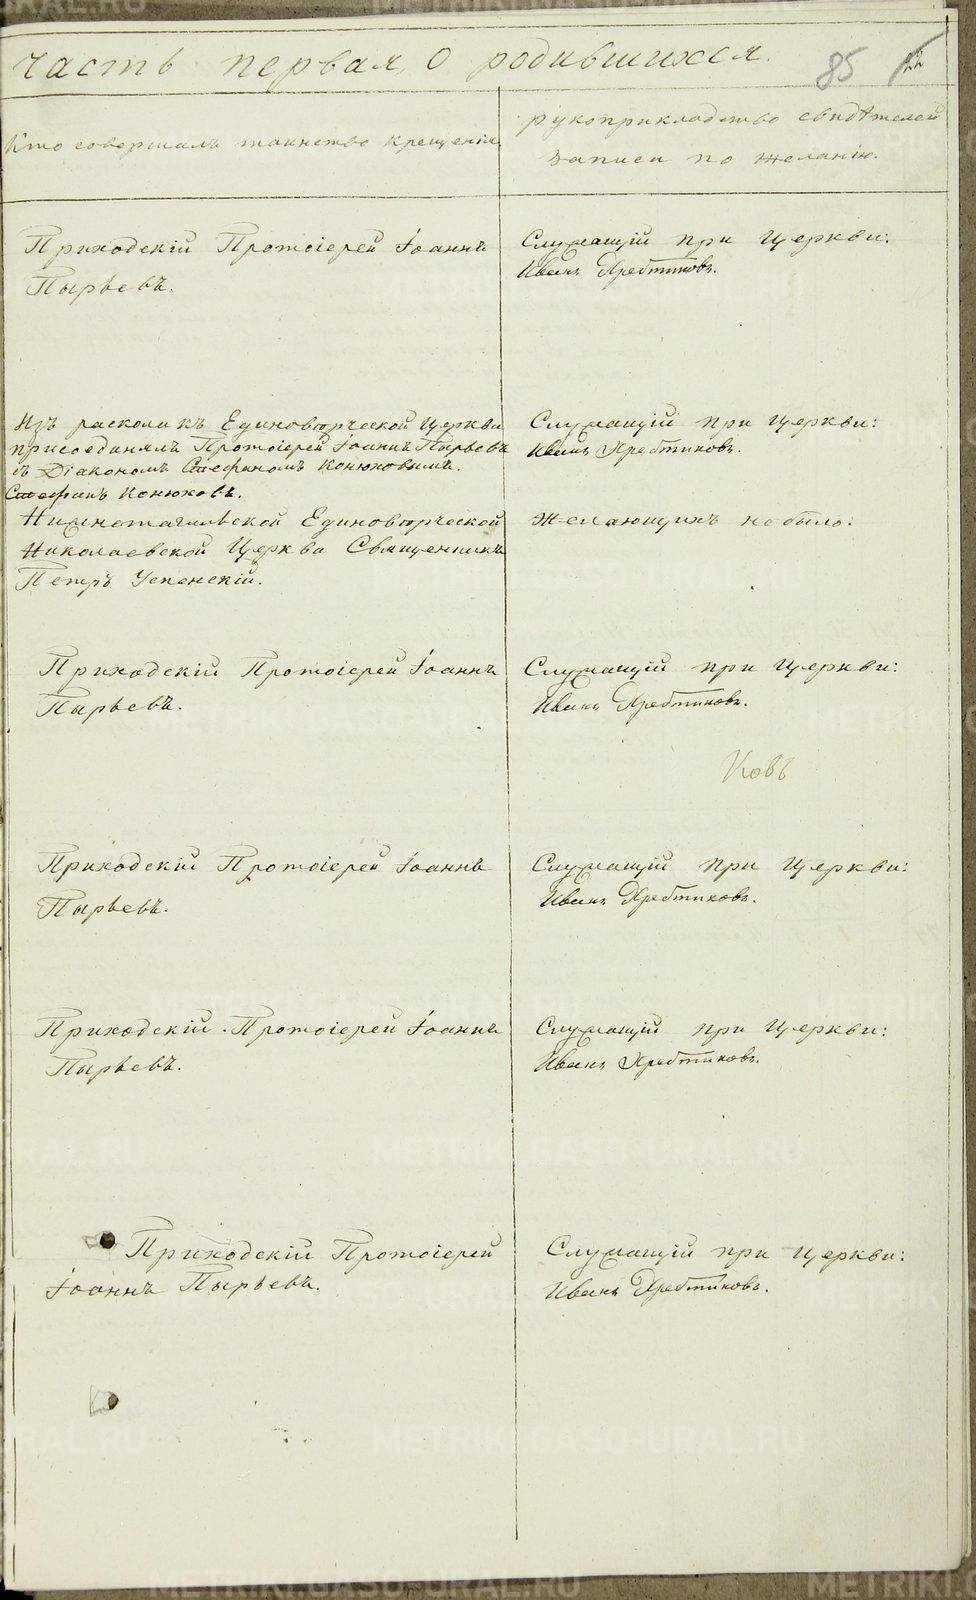 часть первая, о родившихся.
85
Кто совершалъ таинство крещенія.
рукоприкладство свидѣтелей
записи по желанію.
Приходскій Протоіерей Іоаннъ
Пырьевъ.
Служащій при Церкви:
Иванъ Хребтиковъ.
Изъ раскола къ Единовѣрческой Церкви
присоединялъ Протоіерей Іоаннъ Пырьевъ
съ Діакономъ Стефаномъ Конюховымъ.
Стефанъ Конюховъ.
Служащій при Церкви:
Иванъ Хребтиковъ.
Нижнетагильской Единовѣрческой
Николаевской Церкви Священникъ
Петръ Успенскій.
Желающихъ не было:
Приходскій Протоіерей Іоаннъ
Пырьевъ.
Служащій при Церкви:
Иванъ Хребтиковъ.
Приходскій Протоіерей Іоаннъ
Пырьевъ.
Служащій при Церкви:
Иванъ Хребтиковъ.
Приходскій Протоіерей Іоаннъ
Пырьевъ.
Служащій при Церкви:
Иванъ Хребтиковъ.
Приходскій Протоіерей
Іоаннъ Пырьевъ.
Служащій при Церкви:
Иванъ Хребтиковъ.
METRIKI.GASO-URAL.RU